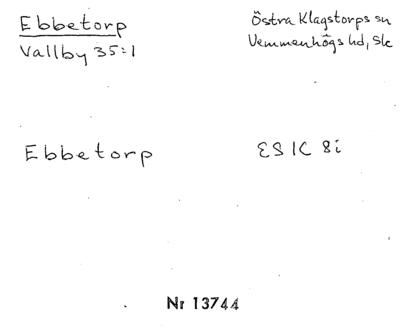 Ebbetorp
Vallby 35:1
Östra Klagstorps sn
Vemmenhögs hd, Sk
Ebbetorp
ESIC 8i
Nr 13744